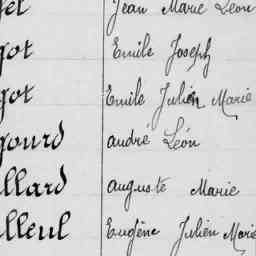 et Jean Marie Léon
got Emile Joseph
got Emile Julien Marie
gourd andré Léon
llard auguste Marie
lleul Eugène Julien Marie